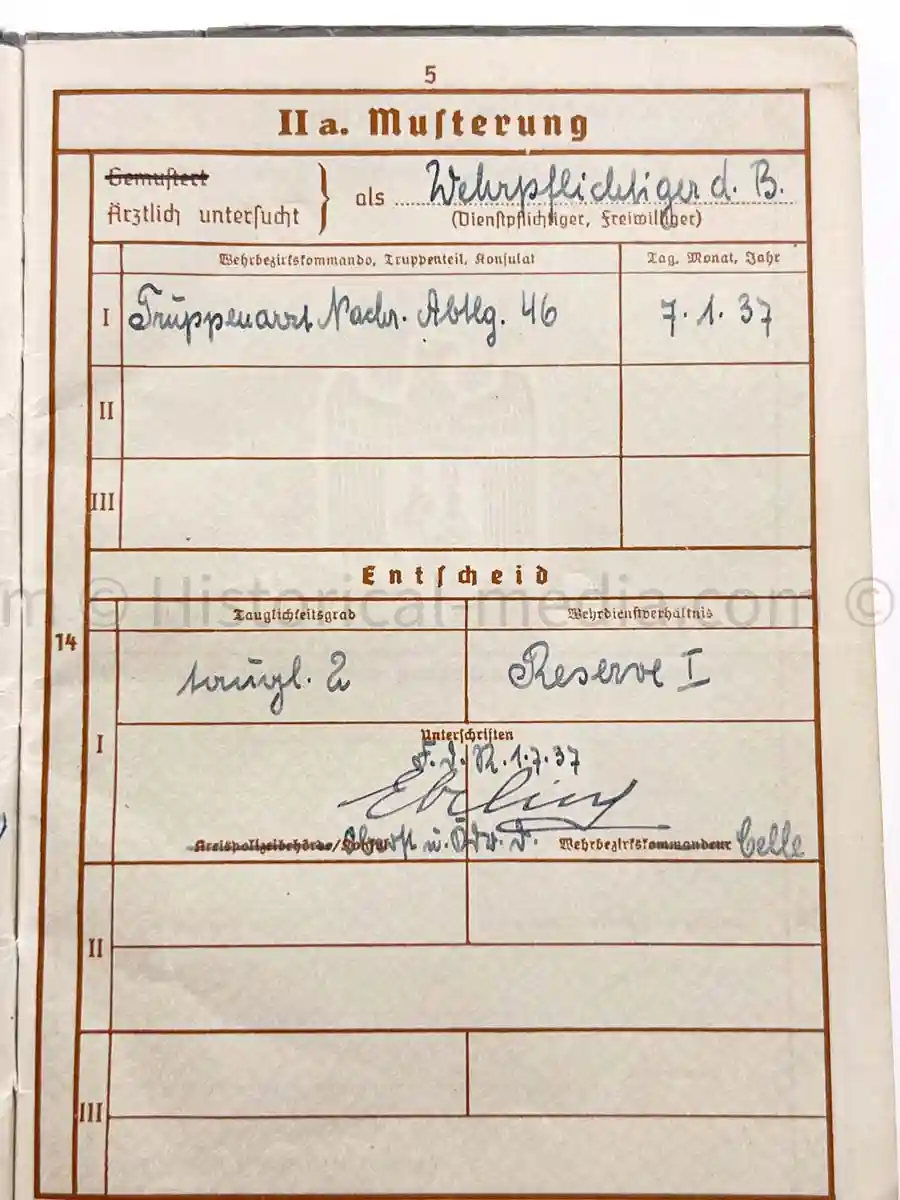 5
II a. Musterung
Gemustert
Ärztlich untersucht } als Wehrpflichtiger d. B.
(Dienstpflichtiger, Freiwilliger)
Wehrbezirkskommando, Truppenteil, Konsulat Tag, Monat, Jahr
I Truppenarzt Nachr. Abtlg. 46 7. 1. 37
II
III
Entscheid
m © Historical-media.com ©
Tauglichkeitsgrad Wehrdienstverhältnis
14
taugl. 2 Reserve I
I
Unterschriften
F. d. R. 1.7.37
Ebeling
Kreispolizeibehörde/Konsul Oberst u. Wehrbezirkskommandeur Celle
II
III